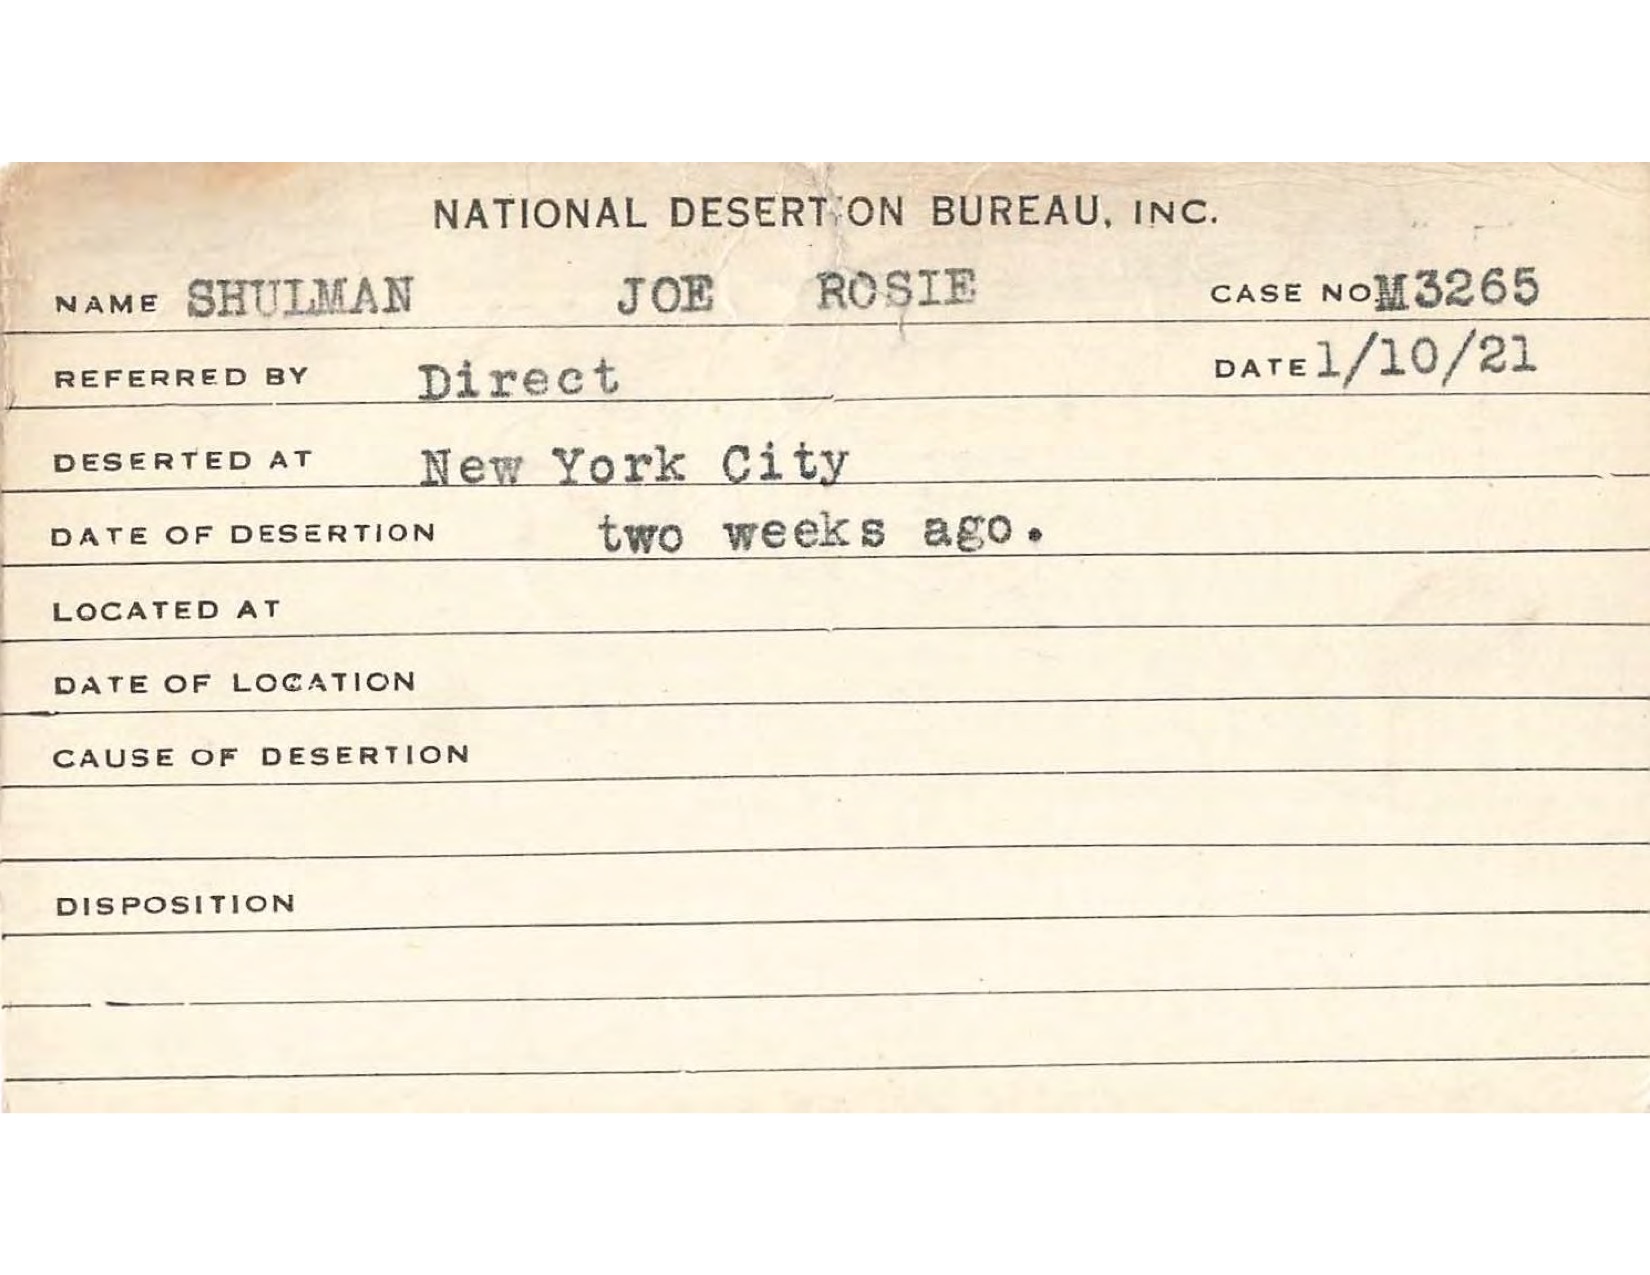 NATIONAL DESERTION BUREAU, INC.
NAME SHULMAN JOE ROSIE CASE NO M3265
REFERRED BY Direct DATE 1/10/21
DESERTED AT New York City
DATE OF DESERTION two weeks ago.
LOCATED AT
DATE OF LOCATION
CAUSE OF DESERTION
DISPOSITION